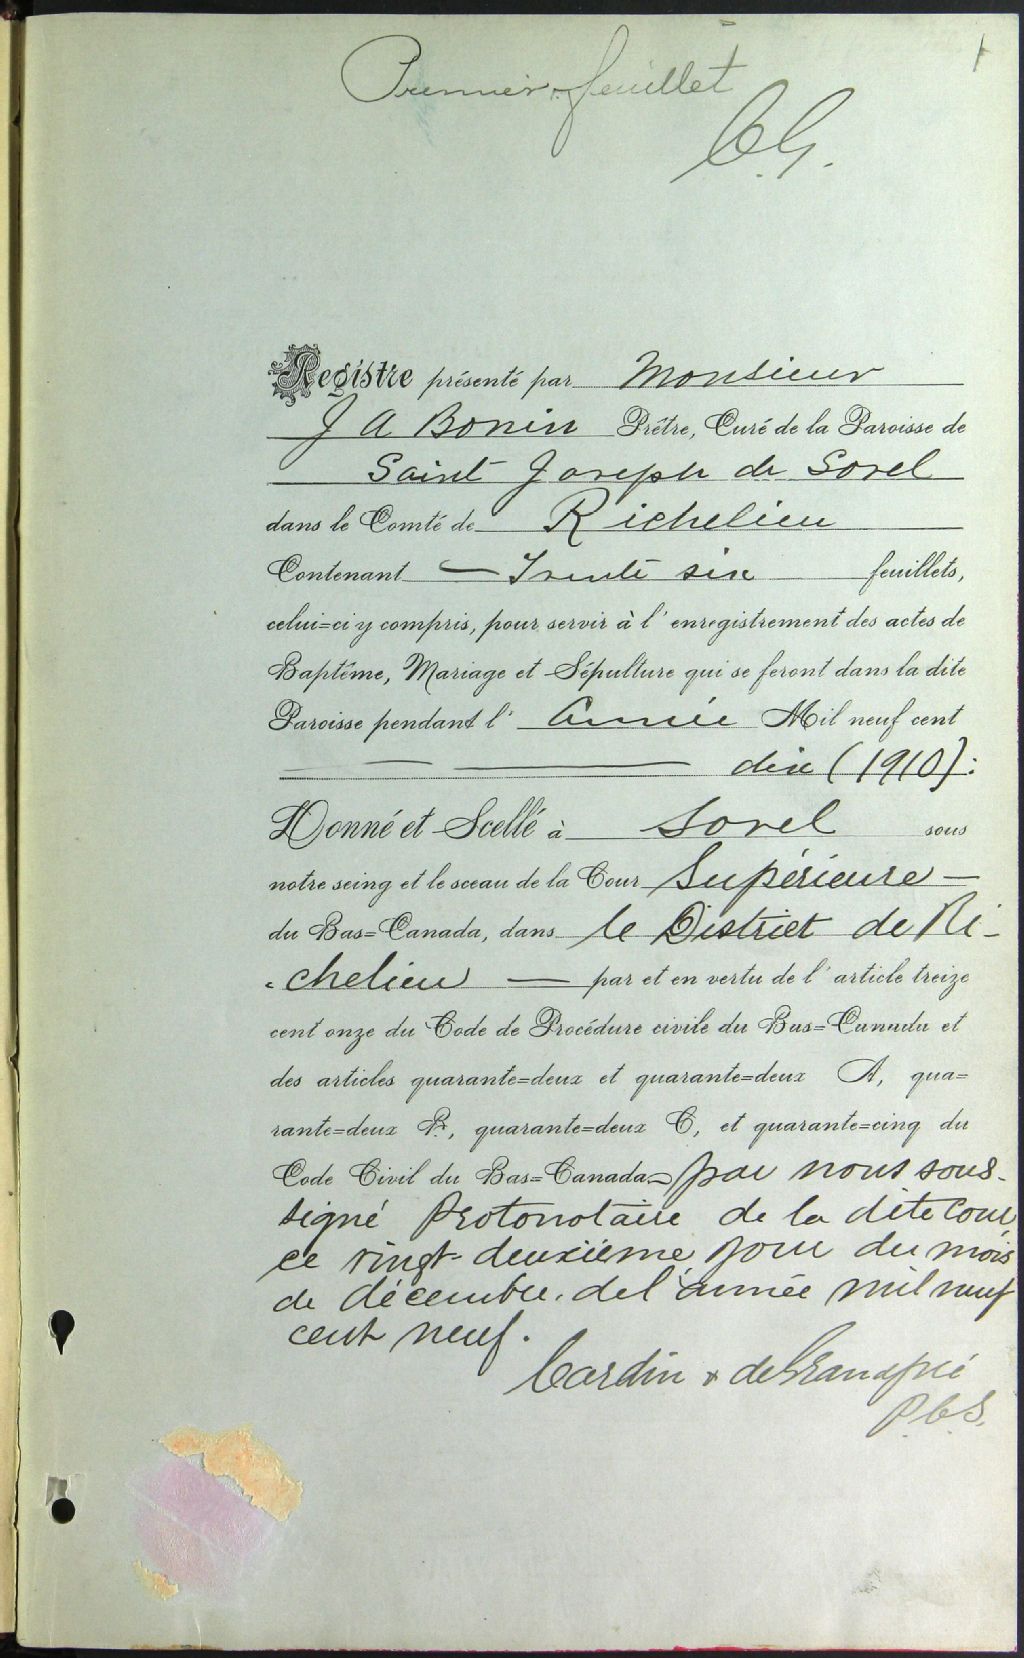 1
Premier feuillet
C.G.
Registre présenté par Monsieur
J A Bonin Prêtre, Curé de la Paroisse de
Saint Joseph de Sorel
dans le Comté de Richelieu
Contenant — Trente six feuillets,
celui=ci y compris, pour servir à l'enregistrement des actes de
Baptême, Mariage et Sépulture qui se feront dans la dite
Paroisse pendant l' Année Mil neuf cent
— — dix (1910):
Donné et Scellé à Sorel sous
notre seing et le sceau de la Cour Supérieure —
du Bas=Canada, dans le District de Ri-
chelieu — par et en vertu de l'article treize
cent onze du Code de Procédure civile du Bas=Canada et
des articles quarante=deux et quarante=deux A, qua=
rante=deux B, quarante=deux C, et quarante=cinq du
Code Civil du Bas=Canada— par nous sous-
signé Protonotaire de la dite Cour
ce vingt-deuxième jour du mois
de décembre de l'année mil neuf
cent neuf.
Cardin & deGrandpré
P.C.S.